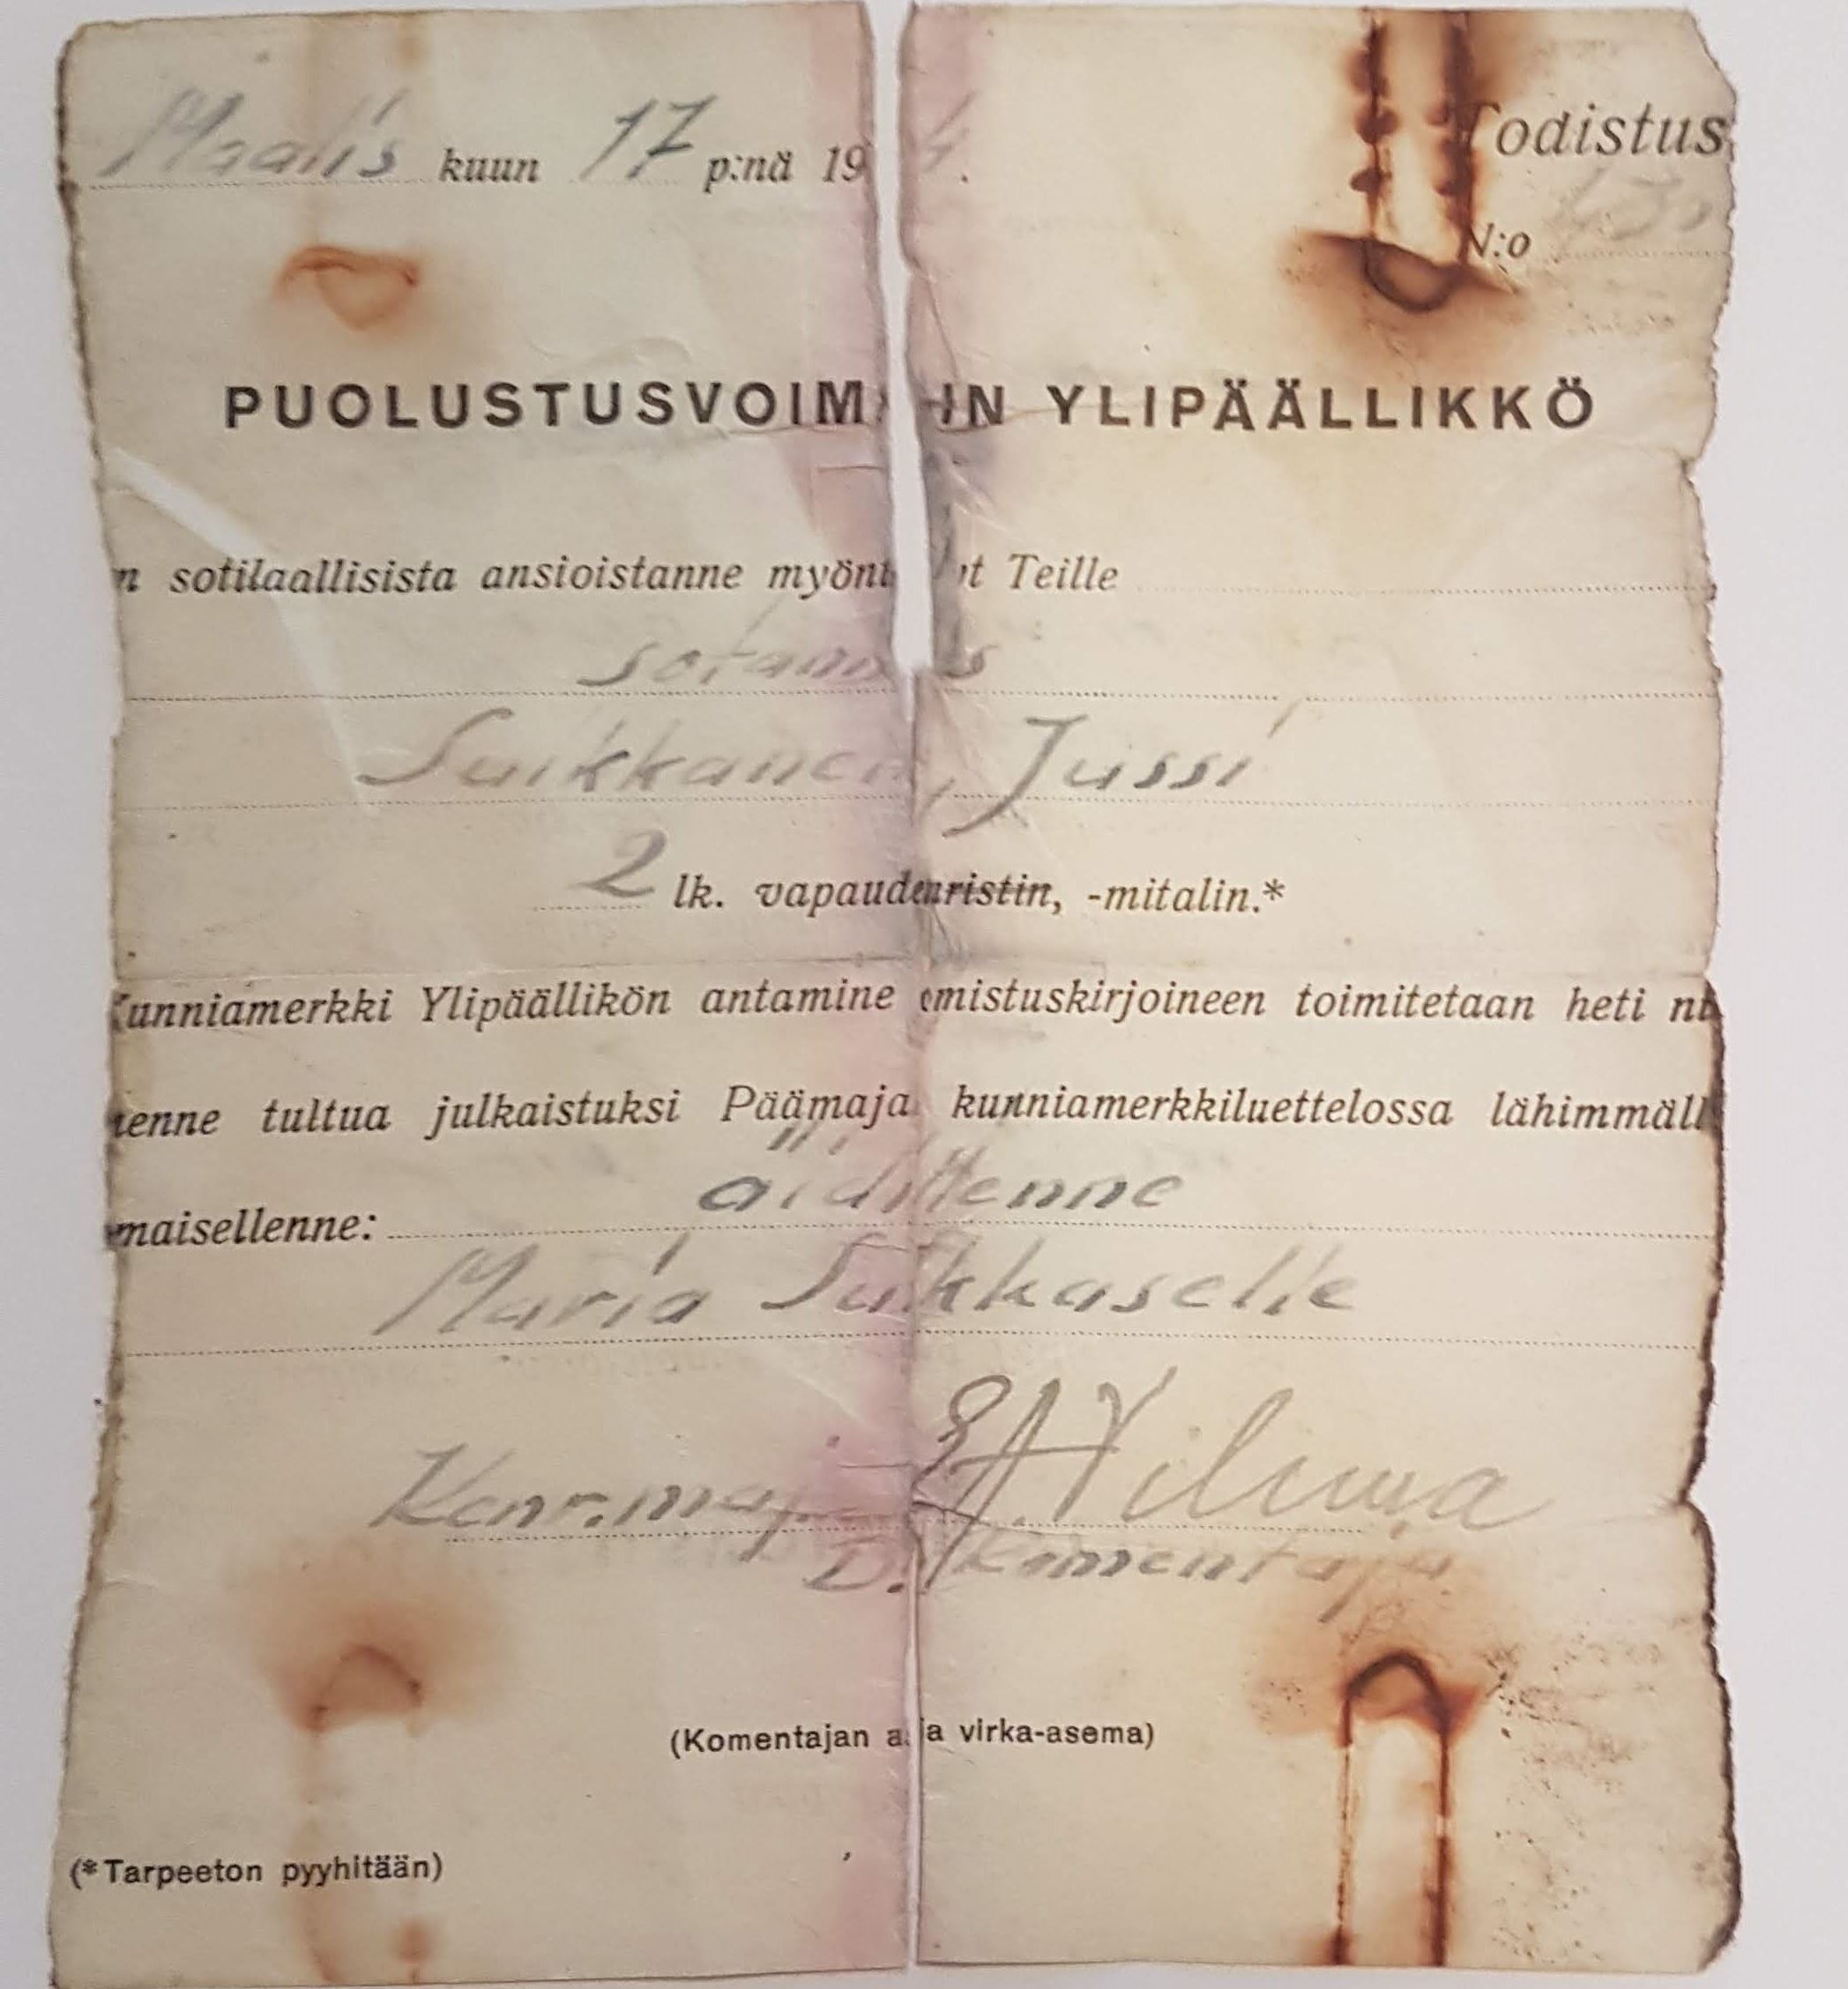 Maalis kuun 17 p:nä 19 4.
Todistus
N:o
PUOLUSTUSVOIM IN YLIPÄÄLLIKKÖ
n sotilaallisista ansioistanne myönt t Teille
sotam s
Suikkanen, Jussi
2 lk. vapaudenristin, -mitalin.*
Kunniamerkki Ylipäällikön antamine omistuskirjoineen toimitetaan heti ni
tenne tultua julkaistuksi Päämaja kunniamerkkiluettelossa lähimmäll
omaisellenne: äidillenne
Maria Suikkaselle
Kenr.maj.
D. Komentaja
(Komentajan a ja virka-asema)
(*Tarpeeton pyyhitään)